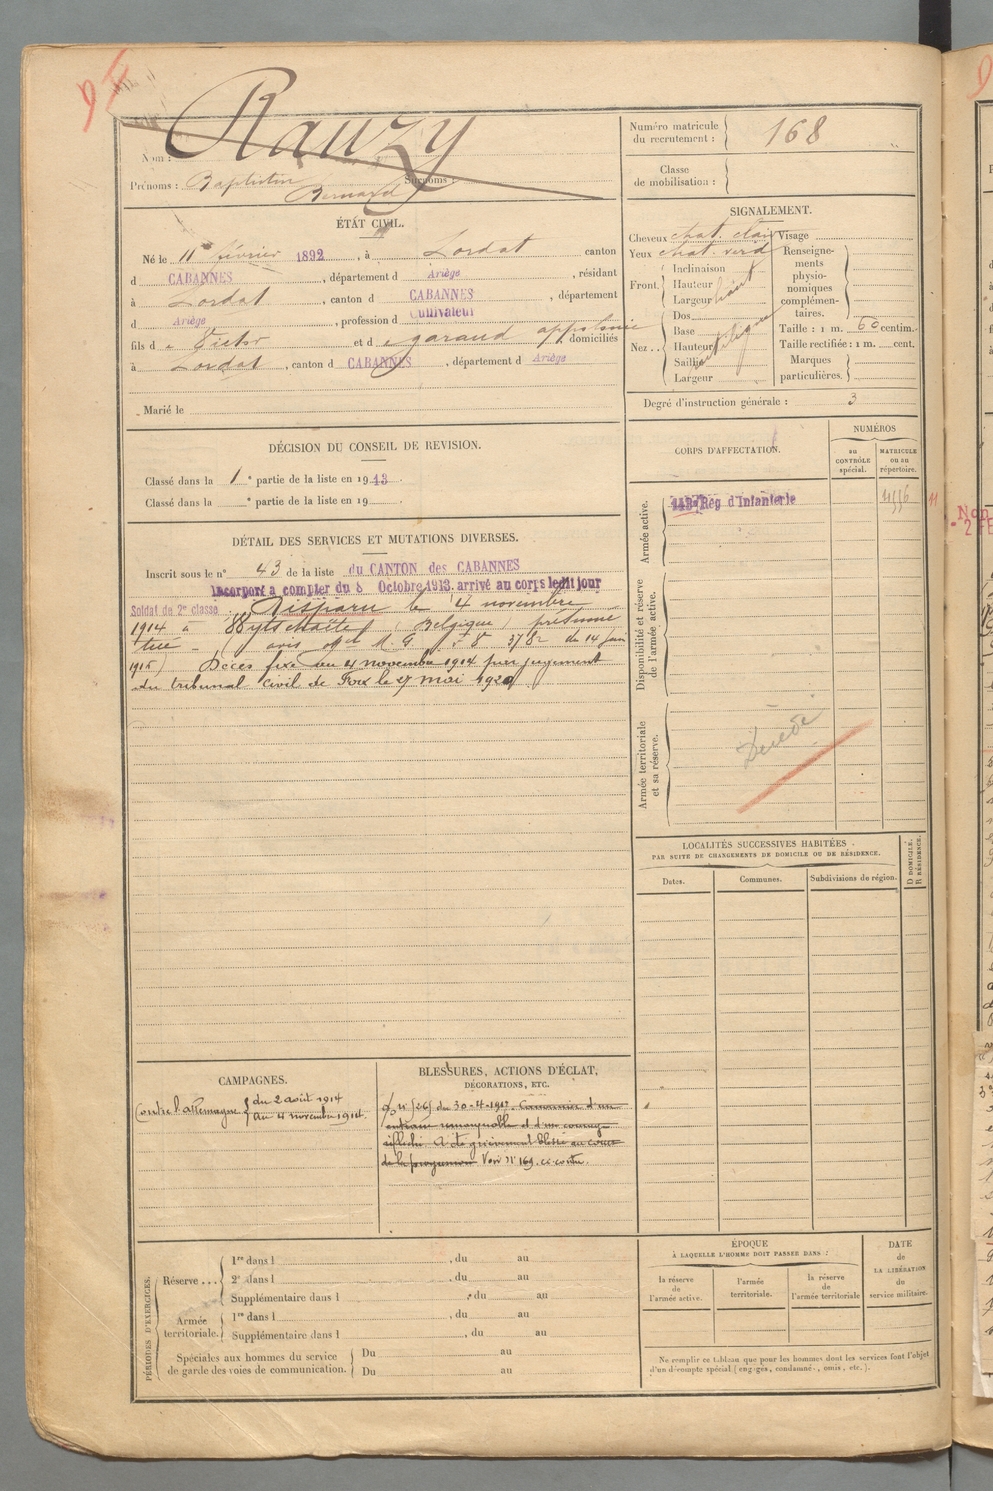 Rauzy
Nom :
Prénoms : Baptistin Surnoms :
Bernard
Numéro matricule
du recrutement : 168
Classe
de mobilisation :
ÉTAT CIVIL.
Né le 11 février 1892, à Lordat canton
d CABANNES, département d Ariège, résidant
à Lordat, canton d CABANNES, département
d Ariège, profession d Cultivateur
fils d e Victor et d e garaud appolonie domiciliés
à Lordat, canton d CABANNES, département d Ariège
Marié le
SIGNALEMENT.
Cheveux chat. clair Visage
Yeux chat. verd
Front. Inclinaison
Hauteur haut
Largeur
Nez .. Dos
Base
Hauteur
Saillie
Largeur
Renseigne-
ments
physio-
nomiques
complémen-
taires.
Taille : 1 m. 60 centim.
Taille rectifiée : 1 m. cent.
Marques
particulières.
Degré d'instruction générale : 3
DÉCISION DU CONSEIL DE REVISION.
Classé dans la 1 e partie de la liste en 1913.
Classé dans la e partie de la liste en 19
CORPS D'AFFECTATION.
NUMÉROS
au
CONTRÔLE
spécial.
MATRICULE
ou au
répertoire.
Armée active.
Rég d'Infanterie
Disponibilité et réserve
de l'armée active.
Armée territoriale
et sa réserve.
Décédé
DÉTAIL DES SERVICES ET MUTATIONS DIVERSES.
Inscrit sous le n° 43 de la liste du CANTON des CABANNES
Incorporé à compter du 8 Octobre 1913. arrivé au corps ledit jour
Soldat de 2e classe. Disparu le 4 novembre
1914 à (Belgique) présumé
tué - (avis du 14 juin
Décès fixé au 4 novembre 1914 par jugement
du tribunal civil de Foix le 27 mai 1920
LOCALITÉS SUCCESSIVES HABITÉES
PAR SUITE DE CHANGEMENTS DE DOMICILE OU DE RÉSIDENCE.
Dates.
Communes.
Subdivisions de région.
D DOMICILE.
R RÉSIDENCE.
CAMPAGNES.
Contre l'allemagne { du 2 août 1914
au 4 novembre 1914.
BLESSURES, ACTIONS D'ÉCLAT,
DÉCORATIONS, ETC.
du 30-4-1917. Canonnier d'un
entrain remarquable et d'un courage
réfléchi. A été grièvement blessé au cours
de la progression Voir n° 169. ci-contre.
PÉRIODES D'EXERCICES.
Réserve ... 1re dans l , du au
2e dans l , du au
Supplémentaire dans l , du au
Armée
territoriale. 1re dans l , du au
Supplémentaire dans l , du au
Spéciales aux hommes du service
de garde des voies de communication. Du au
Du au
ÉPOQUE
À LAQUELLE L'HOMME DOIT PASSER DANS :
la réserve
de
l'armée active.
l'armée
territoriale.
la réserve
de
l'armée territoriale
DATE
de
LA LIBÉRATION
du
service militaire.
Ne remplir ce tableau que pour les hommes dont les services font l'objet
d'un décompte spécial (engagés, condamnés, omis, etc.).